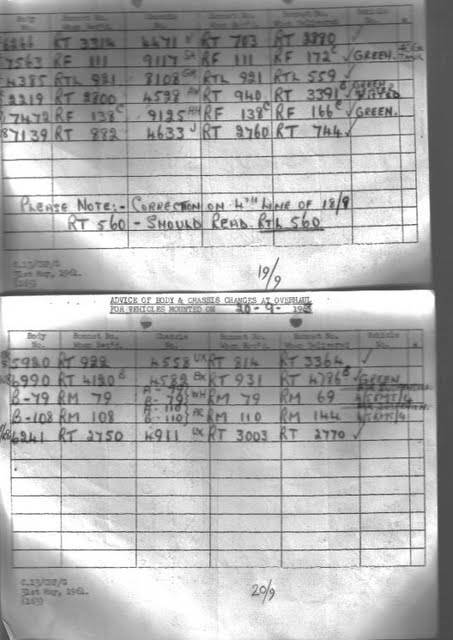 Body No. Bonnet No. When Rec'd. Chassis No. Bonnet No. When Rec'd. Bonnet No. When Delivered Vehicle No.
6266 RT 3314 4471 RT 703 RT 2880
7563 RF 111 9117 SA RF 111 RF 172 C ✓ GREEN.
4385 RTL 921 8108 GM RTL 921 RTL 559 ✓
2219 RT 2800 4598 RT 940 RT 3391 B ✓ GREEN
7472 RF 138 C 9125 HH RF 138 C RF 166 C ✓ GREEN.
7139 RT 882 4633 J RT 2760 RT 744 ✓
PLEASE NOTE:- CORRECTION ON 4TH LINE OF 18/9
RT 560 - SHOULD READ RTL 560
C.13/CHP/G
31st May, 1961.
(165)
19/9
ADVICE OF BODY & CHASSIS CHANGES AT OVERHAUL
FOR VEHICLES MOUNTED ON 20-9-
Body No. Bonnet No. When Rec'd. Chassis No. Bonnet No. When Rec'd. Bonnet No. When Delivered Vehicle No.
5920 RT 922 4558 UX RT 814 RT 3364 ✓
6990 RT 4120 B 4582 BX RT 931 RT 4786 B ✓ GREEN
B-79 RM 79 A-79 B-79 WH RM 79 RM 69
B-108 RM 108 A-110 B-110 RM 110 RM 144
6241 RT 2750 4911 UX RT 3003 RT 2770 ✓
C.13/CHP/G
31st May, 1961.
(165)
20/9